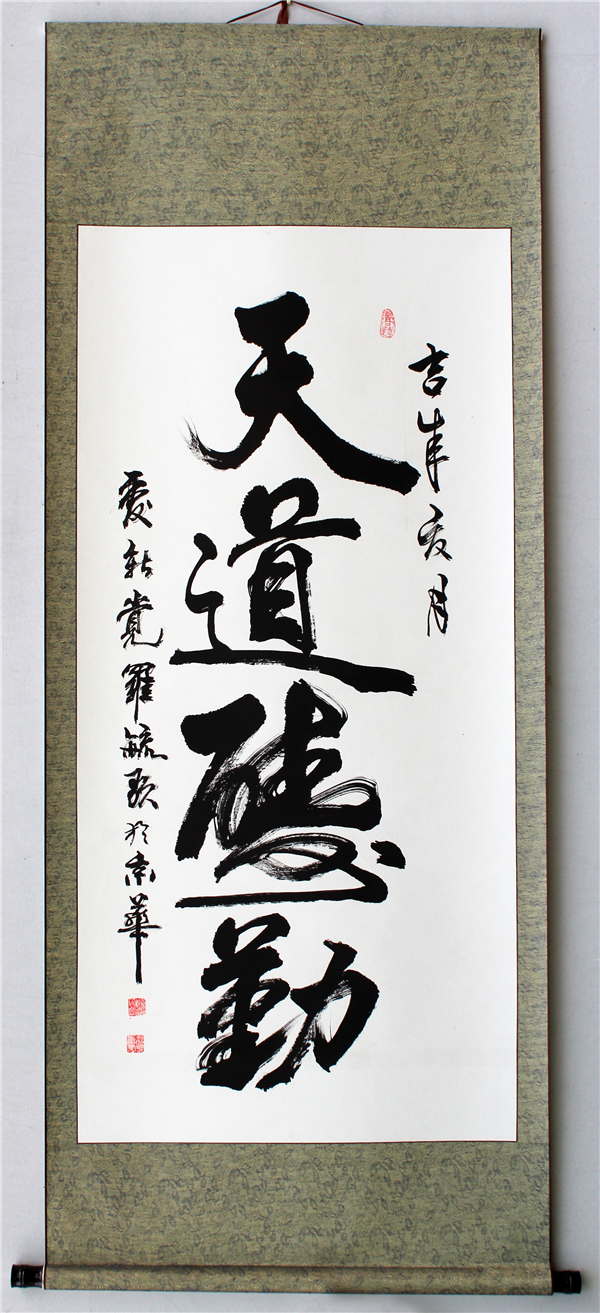 吉年亥月
天道酬勤
愛新覺羅毓於京華